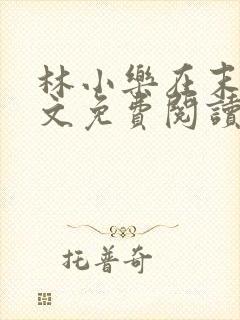 林小樂在末
文免費閱讀
托普奇